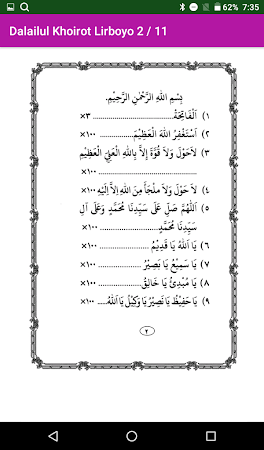 62% 7:35
Dalailul Khoirot Lirboyo 2 / 11
بِسْمِ اللهِ الرَّحْمٰنِ الرَّحِيْمِ.
١) اَلْفَاتِحَةُ.......................................٣×
٢) اَسْتَغْفِرُ اللهَ الْعَظِيْمَ..........................١٠٠×
٣) لاَحَوْلَ وَلاَ قُوَّةَ إِلاَّ بِاللهِ الْعَلِيِّ الْعَظِيْمِ
.......................................١٠٠×
٤) لاَ حَوْلَ وَلاَ مَلْجَأَ مِنَ اللهِ إِلاَّ إِلَيْهِ ١٠٠×
٥) اَللّٰهُمَّ صَلِّ عَلَى سَيِّدِنَا مُحَمَّدٍ وَعَلَى آلِ
سَيِّدِنَا مُحَمَّدٍ..........................١٠٠×
٦) يَا اَللهُ يَا قَدِيْمُ..........................١٠٠×
٧) يَا سَمِيْعُ يَا بَصِيْرُ..........................١٠٠×
٨) يَا مُبْدِئُ يَا خَالِقُ..........................١٠٠×
٩) يَا حَفِيْظُ يَا نَصِيْرُ يَا وَكِيْلُ يَا اَللهُ.....١٠٠×
٢